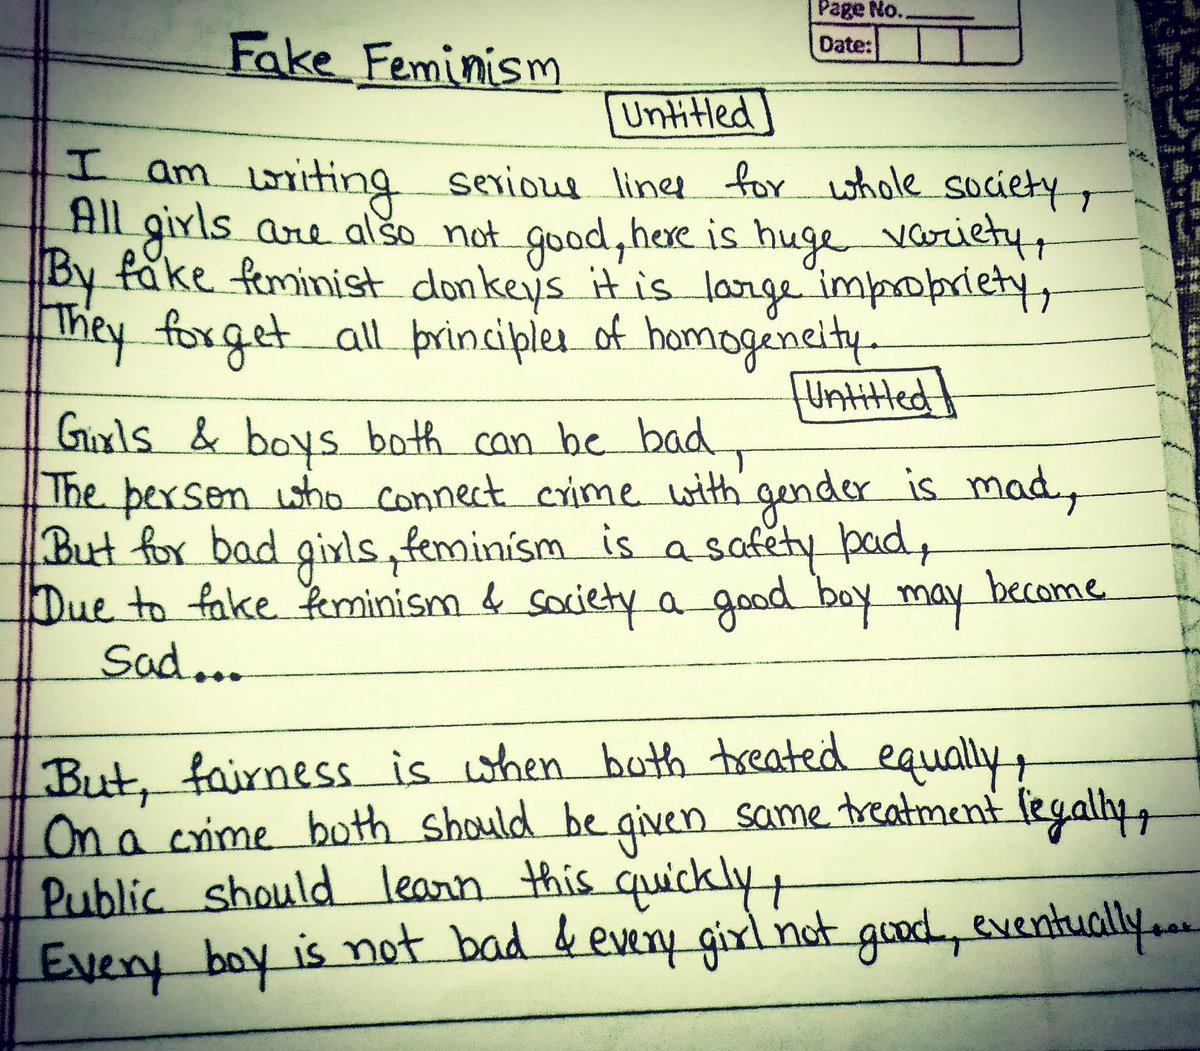 Page No.
Date:
Fake Feminism
Untitled
I am writing serious lines for whole society,
All girls are also not good, here is huge variety,
By fake feminist donkeys it is large impropriety,
They forget all principles of homogeneity.
Untitled
Girls & boys both can be bad,
The person who connect crime with gender is mad,
But for bad girls, feminism is a safety pad,
Due to fake feminism & society a good boy may become
Sad...
But, fairness is when both treated equally,
On a crime both should be given same treatment legally,
Public should learn this quickly,
Every boy is not bad & every girl not good, eventually...